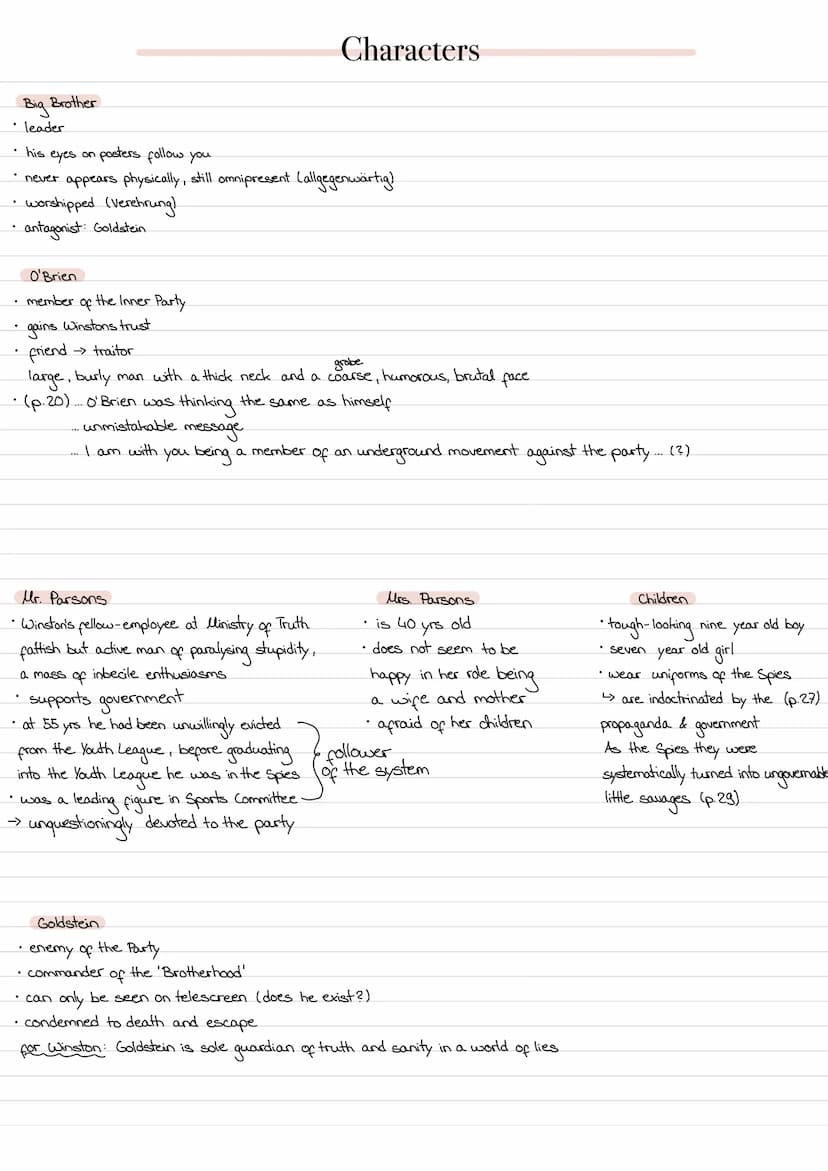 Characters
Big Brother
· leader
· his eyes on posters follow you
· never appears physically, still omnipresent (allgegenwärtig)
· worshipped (Verehrung)
· antagonist: Goldstein
O'Brien
· member of the Inner Party
· gains Winstons trust
· friend → traitor
grobe
large, burly man with a thick neck and a coarse, humorous, brutal face
· (p.20) ... O'Brien was thinking the same as himself
... unmistakable message
... I am with you being a member of an underground movement against the party ... (?)
Mr. Parsons
· Winston's fellow-employee at Ministry of Truth
fattish but active man of paralysing stupidity,
a mass of inbecile enthusiasms
· supports government
· at 35 yrs he had been unwillingly evicted
from the Youth League, before graduating
into the Youth League he was in the Spies
· was a leading figure in Sports Committee
→ unquestioningly devoted to the party
follower
of the system
Mrs. Parsons
· is 40 yrs old
· does not seem to be
happy in her role being
a wife and mother
· afraid of her children
Children
· tough-looking nine year old boy
· seven year old girl
· wear uniforms of the Spies
↳ are indoctrinated by the (p.27)
propaganda & government
As the Spies they were
systematically turned into ungovernable
little savages (p.29)
Goldstein
· enemy of the Party
· commander of the 'Brotherhood'
· can only be seen on telescreen (does he exist?)
· condemned to death and escape
for Winston: Goldstein is sole guardian of truth and sanity in a world of lies